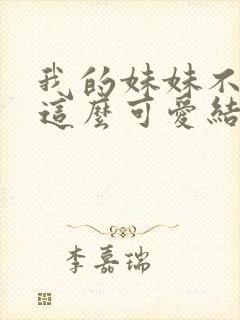 我的妹妹不
這麼可愛結
李嘉瑞